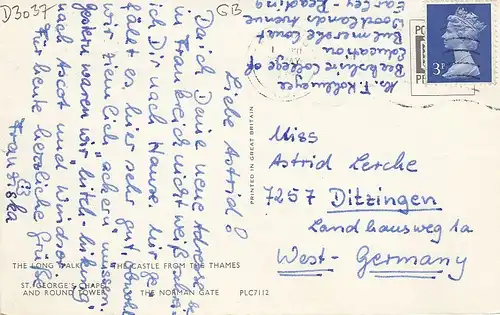 D3037
GB
Liebe Astrid!
Da ich Deine neue Adresse
in Frankreich nicht weiß, schreibe
ich Dir nach Hause. Mir ge-
fällt es hier sehr gut, obwohl
wir ziemlich „ackern“ müssen.
Gestern waren wir „hitch-hiking“
nach Ascot und Windsor.
Für heute herzliche Grüße
Franziska
Abs. F. Kollmeyer
Berkshire College of
Education
Bulmershe Court
Woodlands Avenue
Earley-Reading
3P
PRINTED IN GREAT BRITAIN
Miss
Astrid Lerche
7257 Ditzingen
Landhausweg 1a
West-Germany
THE LONG WALK
THE CASTLE FROM THE THAMES
ST. GEORGE'S CHAPEL
AND ROUND TOWER
THE NORMAN GATE
PLC7112